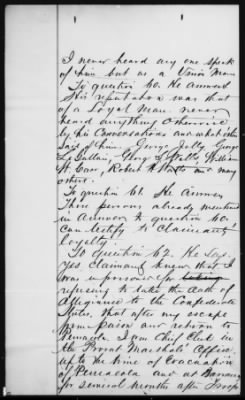 I never heard any one speak
of him but as a Union Man
To question 60. He answered
His reputation was that
of a Loyal Man. never
heard anything otherwise
by his Conversations and what others
said of him. George
George
H. Carr, Robert and many
others.
To question 61. He Answers
Those persons already mentioned
in Answer to question 60.
can testify to Claimants
loyalty.
To question 62. He says
Yes Claimant knew that I
was imprisoned for
refusing to take the Oath of
Allegiance to the Confederate
States, that after my escape
from prison and return to
I was Chief Clerk in
the Provost Marshals Office
up to the time of Evacuation
of Pensacola and at Barrancas
for several months after Troops